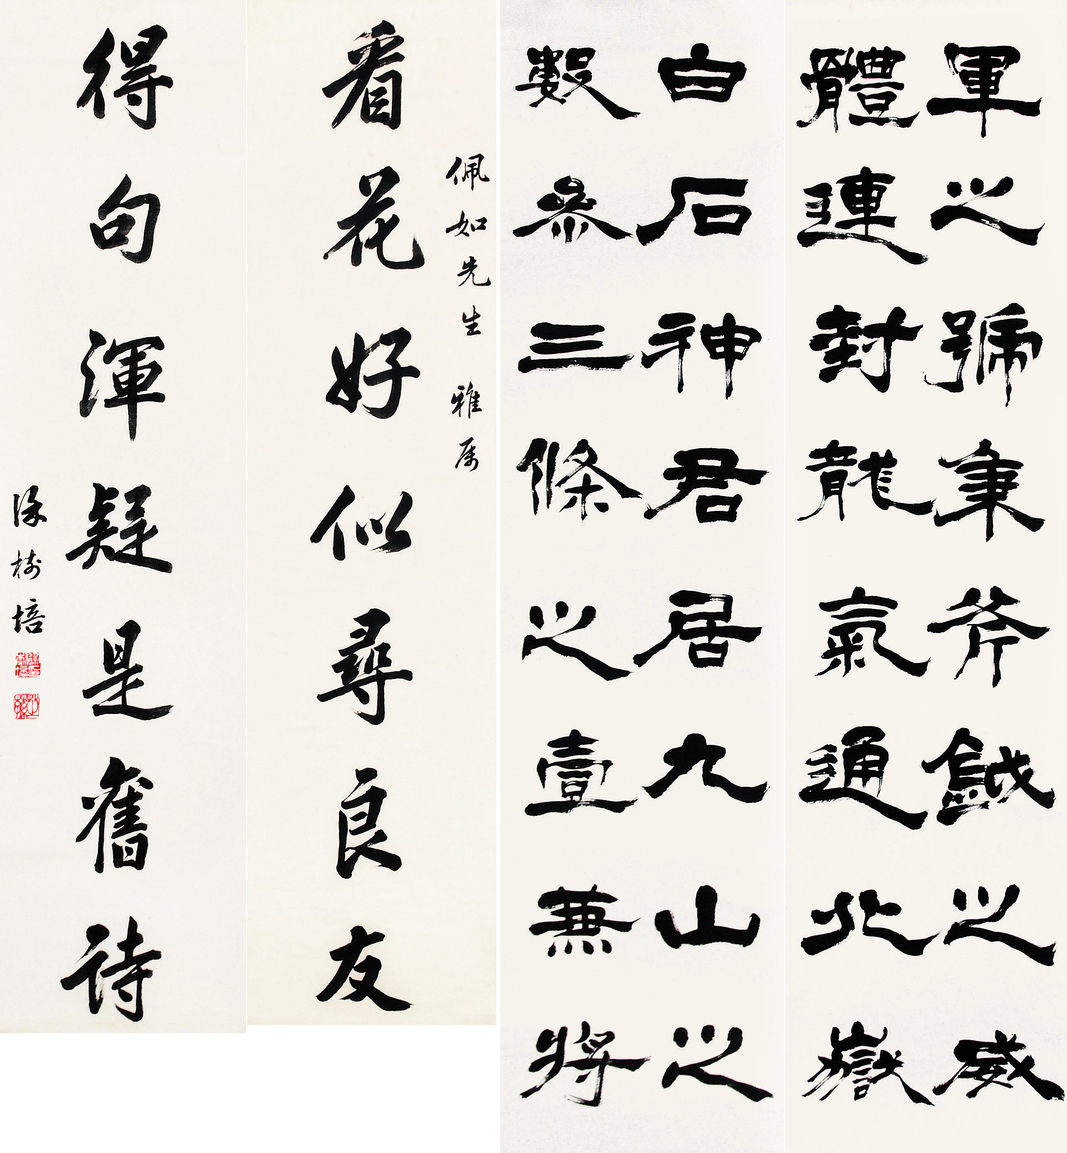 佩如先生 雅属
看花好似尋良友
得句渾疑是舊詩
樹培
白石神君居九山之
數參三條之壹兼將
軍之號秉斧鉞之威
體連封龍氣通北嶽